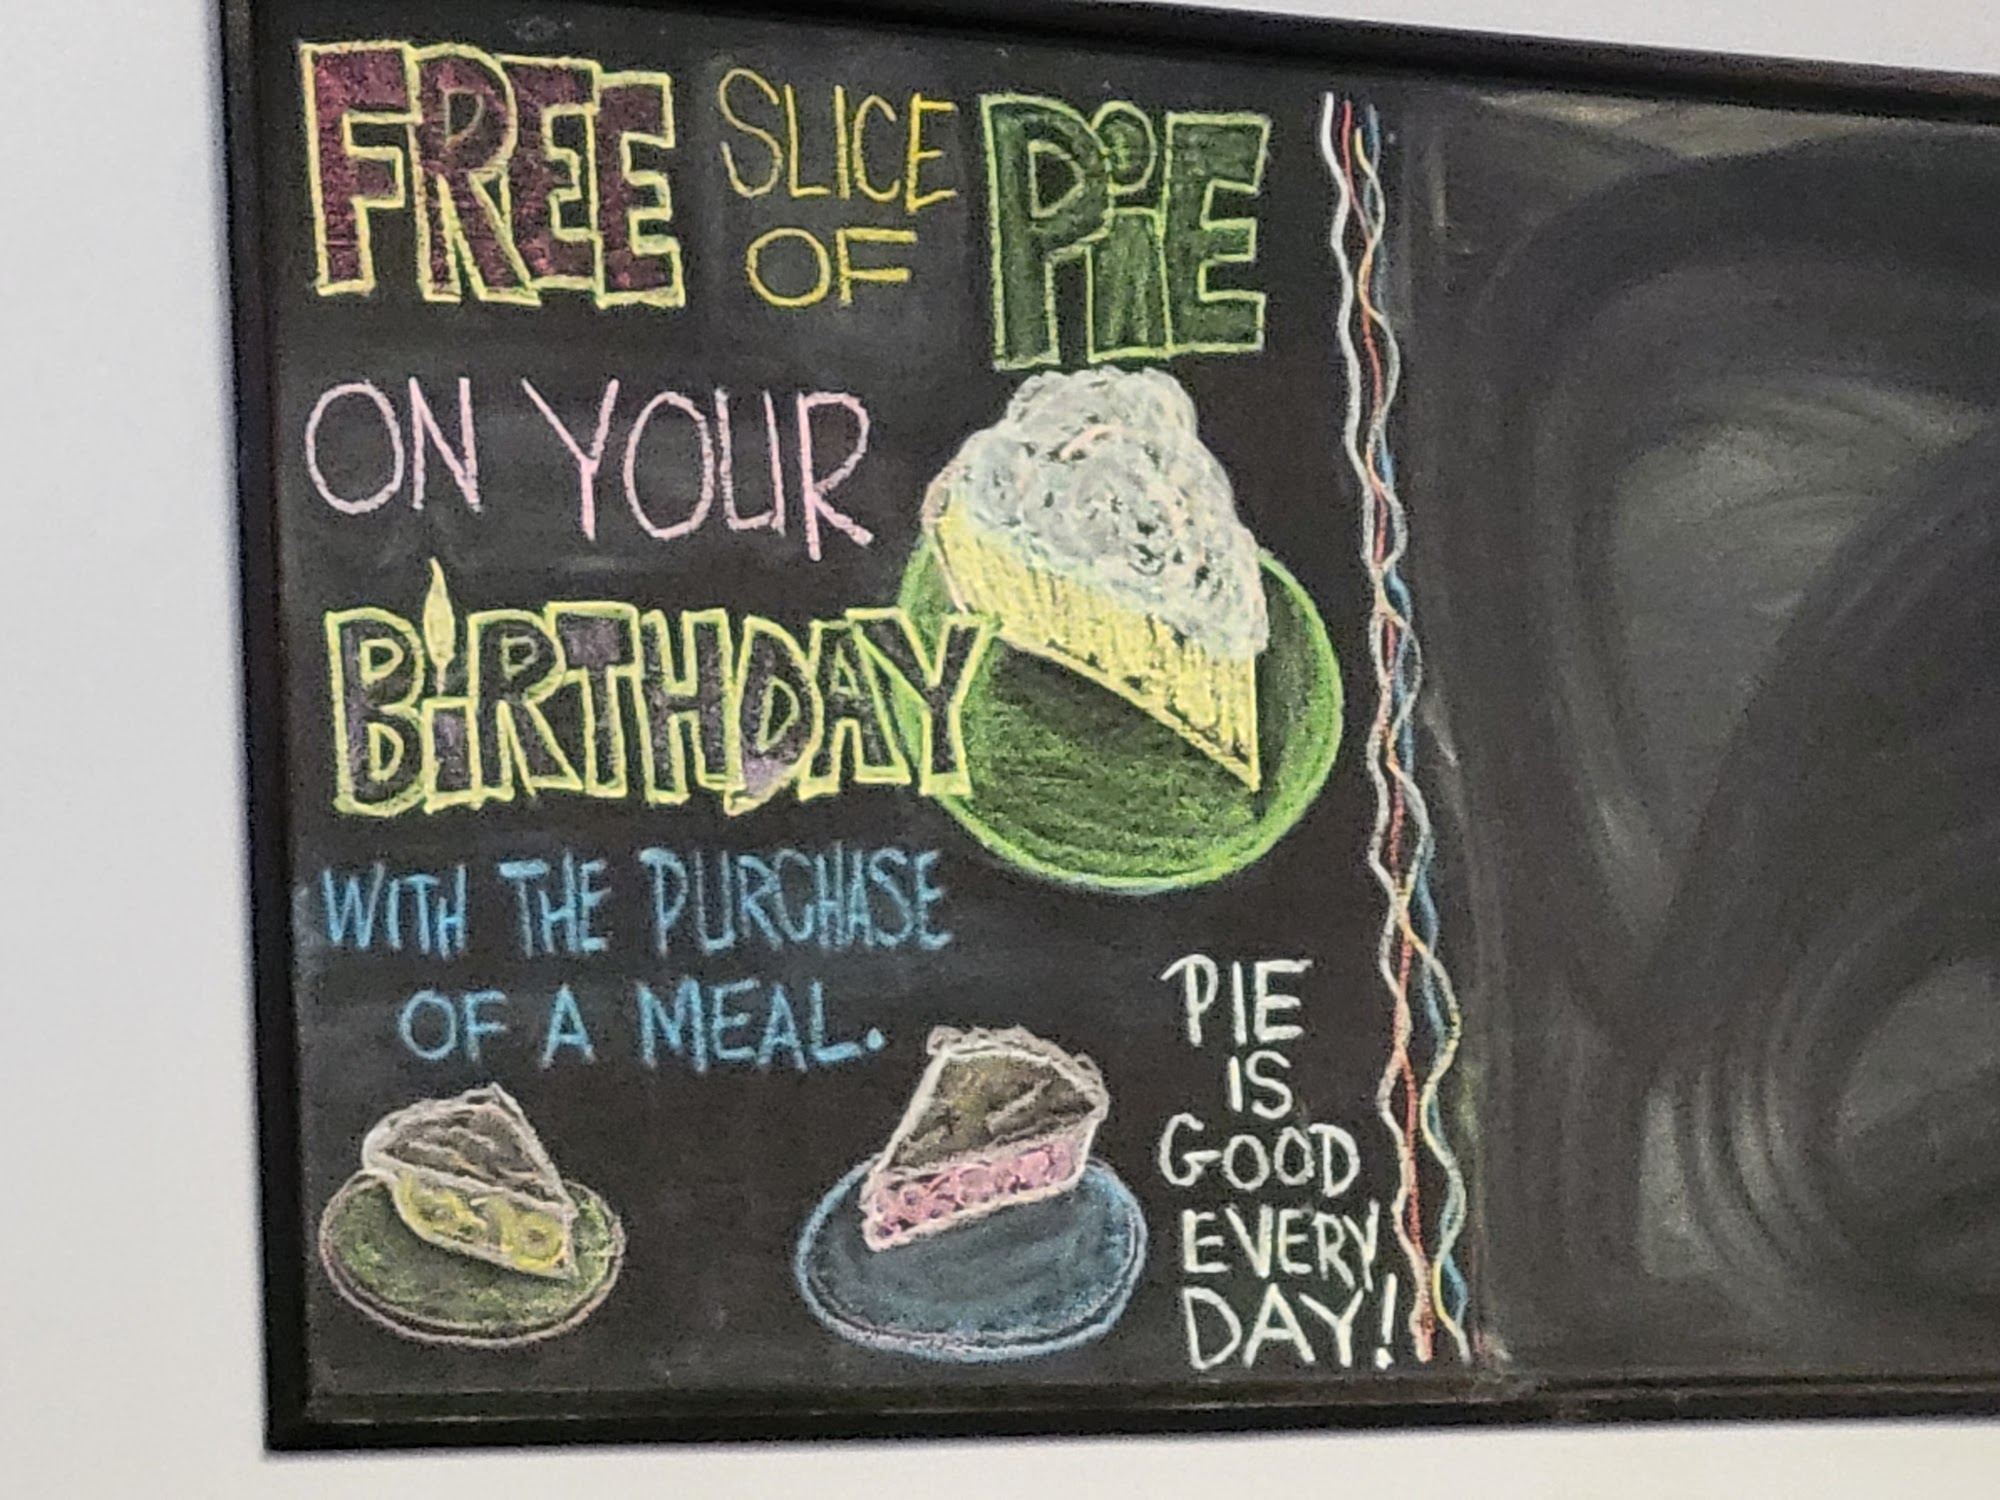 FREE SLICE OF PiE
ON YOUR
BiRTHDAY
WITH THE PURCHASE
OF A MEAL.
PIE
IS
GOOD
EVERY
DAY!